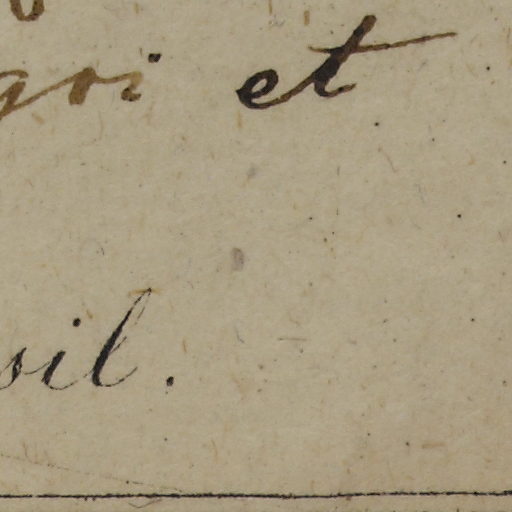 gri et
sil.